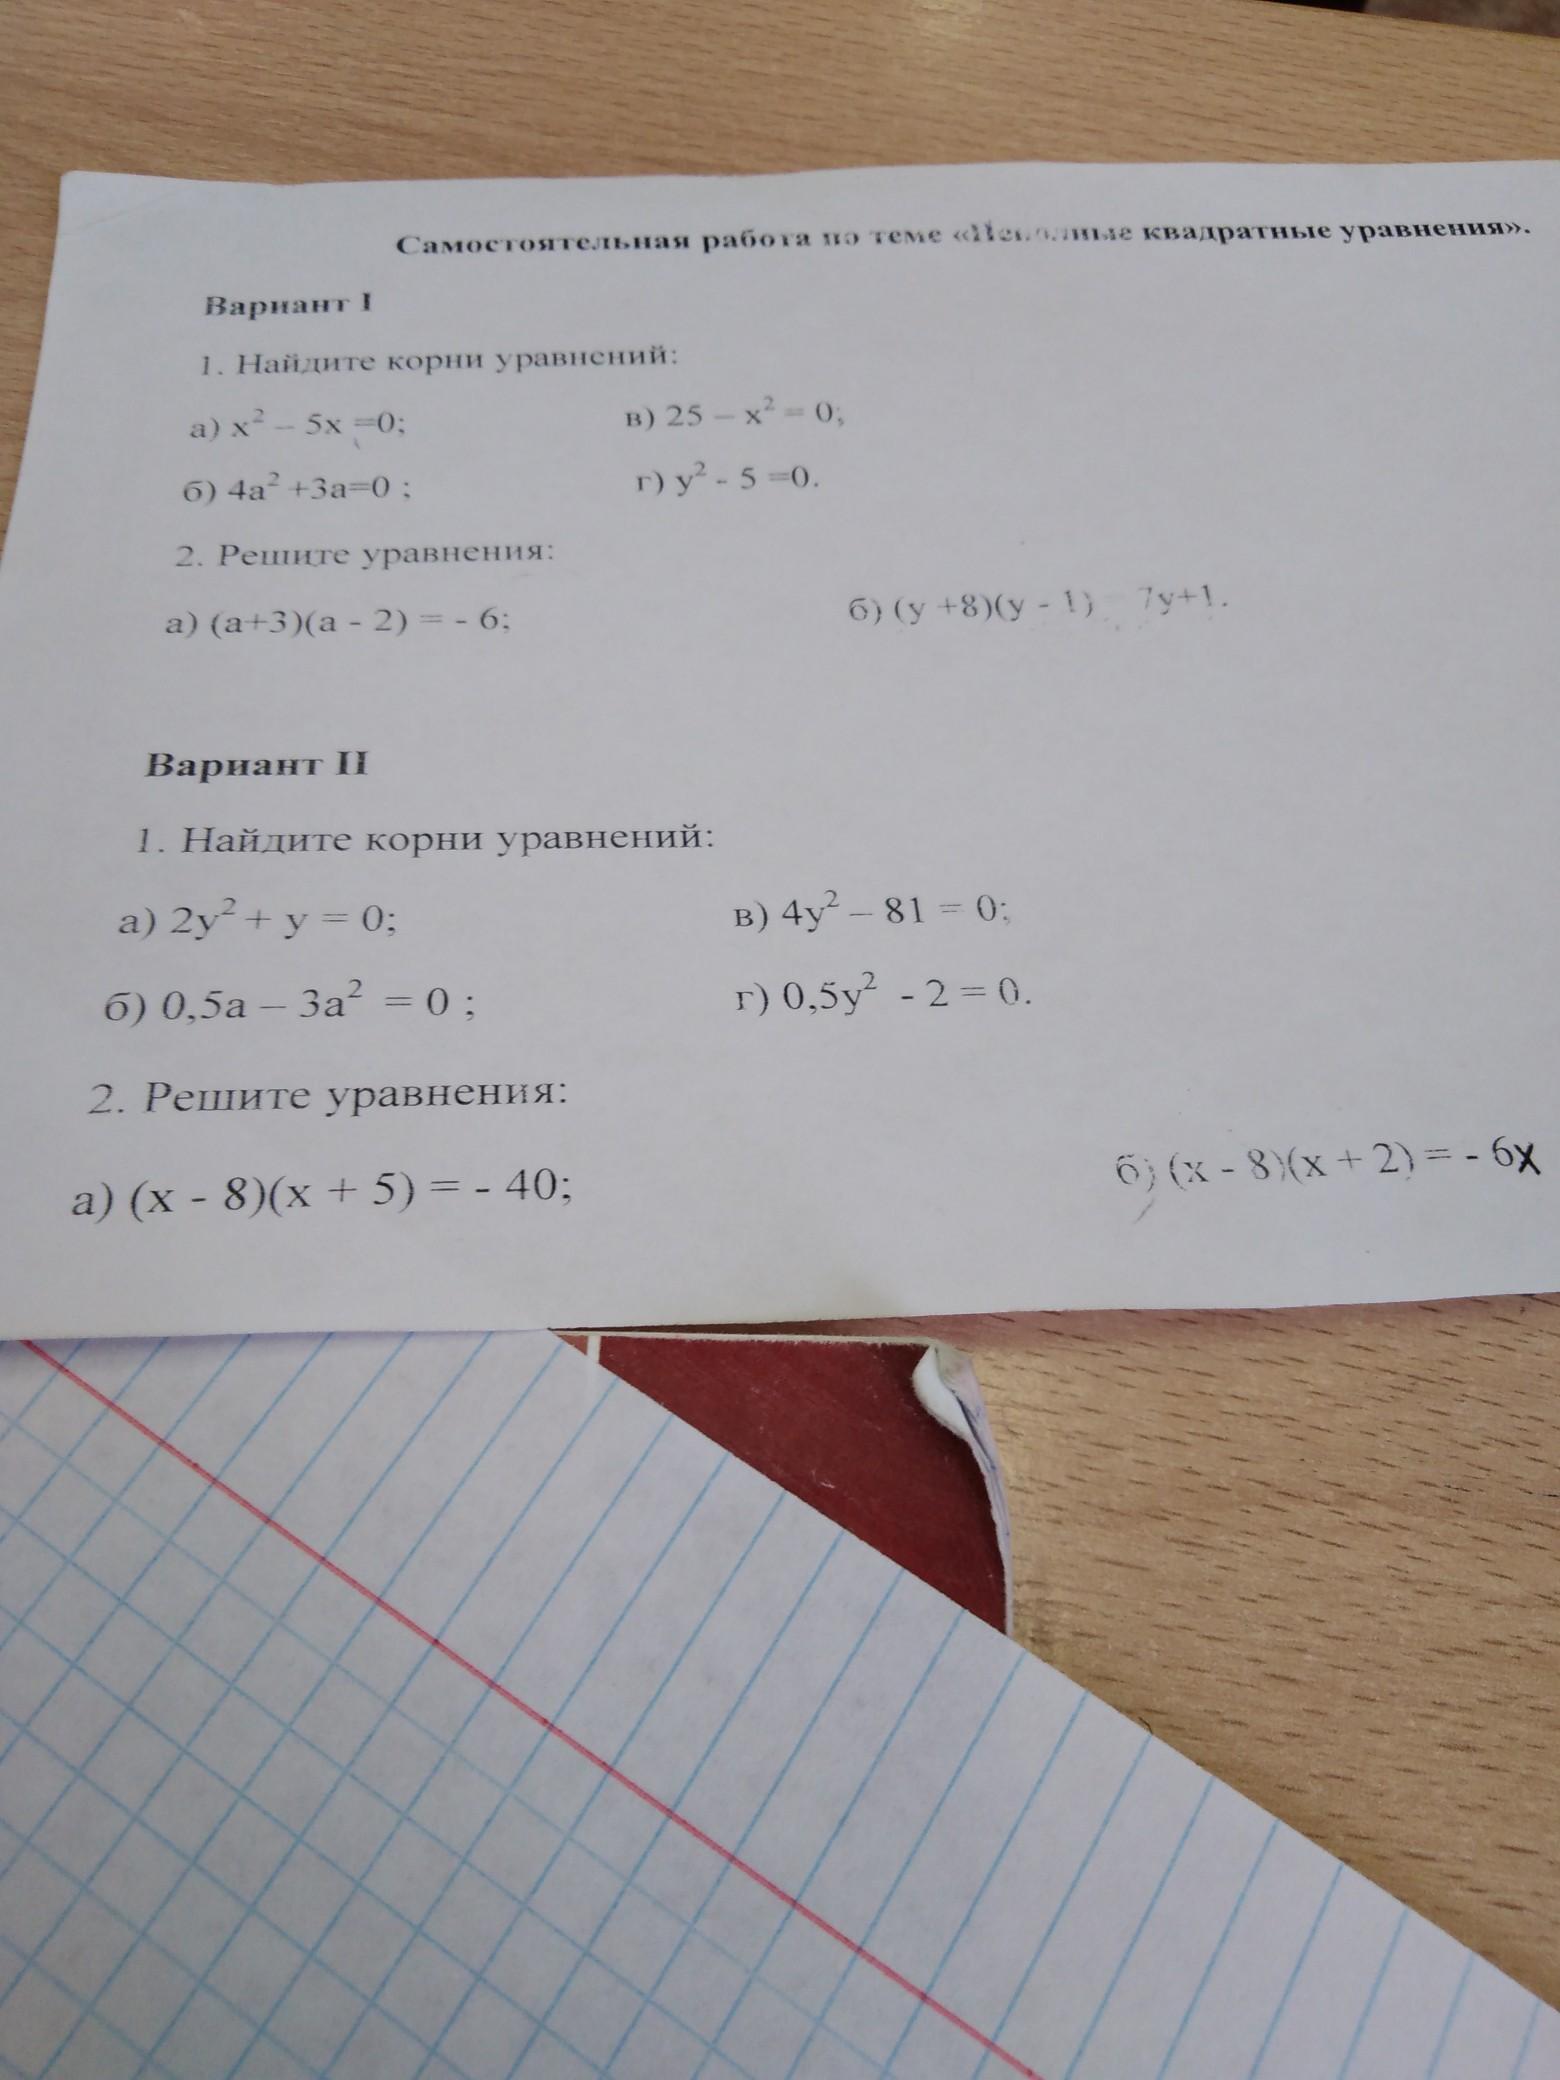 Самостоятельная работа по теме «Неполные квадратные уравнения».
Вариант I
1. Найдите корни уравнений:
а) x² – 5x =0; в) 25 – x² = 0;
б) 4a² +3a=0 ; г) y² - 5 =0.
2. Решите уравнения:
а) (a+3)(a - 2) = - 6; б) (y +8)(y - 1) 7y+1.
Вариант II
1. Найдите корни уравнений:
а) 2y² + y = 0; в) 4y² – 81 = 0;
б) 0,5a – 3a² = 0 ; г) 0,5y² - 2 = 0.
2. Решите уравнения:
а) (x - 8)(x + 5) = - 40; б) (x - 8)(x + 2) = - 6x